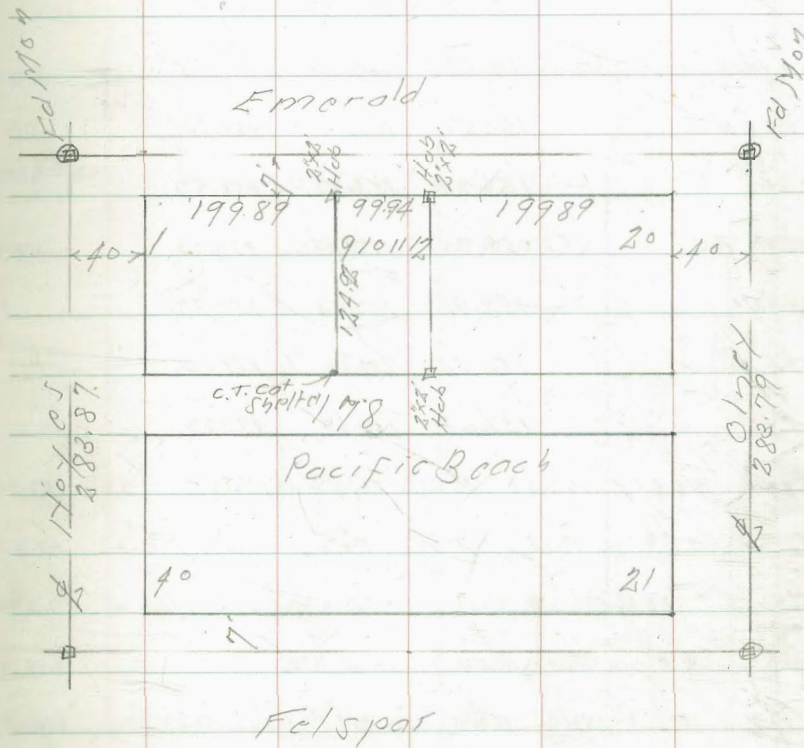 Fd Mon
Fd Mon
Emerald
7'
2"x2"
Hub
Hub
2"x2"
199.89
99.94
199.89
40
1
9 10 11 12
20
40
124.92
C.T. Cot
178
2"x2"
Hub
Pacific Beach
℄ Noyes
283.87
℄ Olney
283.79
40
21
7'
Felspar